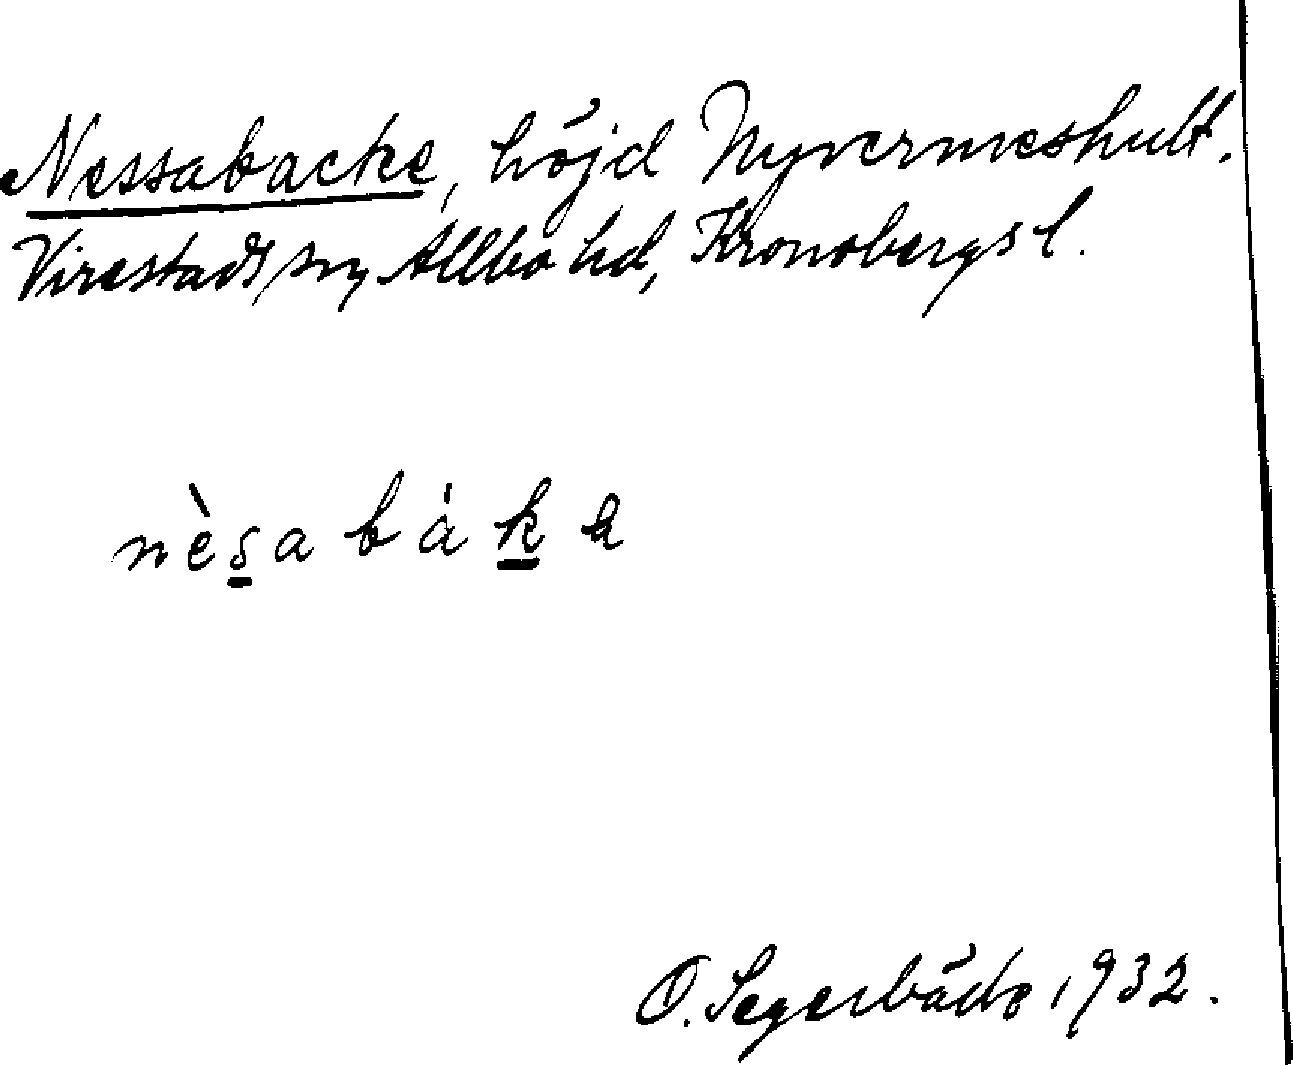 Nessabacke, höjd Nyvermeshult.
Virestads sn, Allbo hd, Kronobergs l.
nèsabákɑ
O. Segerbäck 1932.